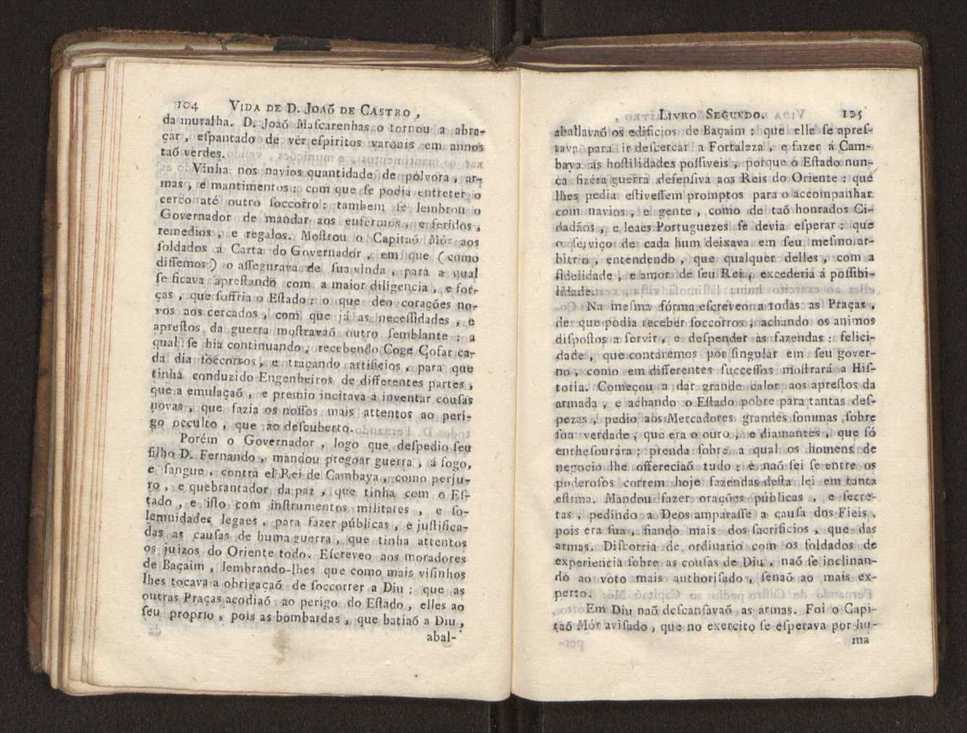 104 VIDA DE D. JOAÕ DE CASTRO ,
da muralha. D. Joaõ Maſcarenhas o tornou a abra-
çar , eſpantado de ver eſpiritos varonis em annos
taõ verdes.
Vinha nos navios quantidade de polvora , ar-
mas , e mantimentos ; com que ſe podia entreter o
cerco até outro ſoccorro : tambem ſe lembrou o
Governador de mandar aos enfermos , e feridos ,
remedios , e regalos. Moſtrou o Capitaõ Mór aos
ſoldados a Carta do Governador , em que ( como
diſſemos ) o aſſegurava de ſua vinda , para a qual
ſe ficava apreſtando com a maior diligencia , e for-
ças , que ſoffria o Eſtado : o que deo corações no-
vos aos cercados , com que já as neceſſidades , e
apreſtos da guerra moſtravaõ outro ſemblante : a
qual ſe hia continuando , recebendo Coge Çofar ca-
da dia ſoccorros , e traçando artificios , para que
tinha conduzido Engenheiros de differentes partes ,
que a emulaçaõ , e premio incitava a inventar couſas
novas , que fazia os noſſos mais attentos ao peri-
go occulto , que ao deſcuberto.
Porém o Governador , logo que deſpedio ſeu
filho D. Fernando , mandou pregoar guerra , á fogo,
e ſangue , contra el Rei de Cambaya , como perju-
ro , e quebrantador da paz , que tinha com o Eſ-
tado , e iſto com inſtrumentos militares , e ſo-
lemnidades legaes , para fazer públicas , e juſtifica-
das as cauſas de huma guerra , que tinha attentos
os juizos do Oriente todo. Eſcreveo aos moradores
de Baçaim , lembrando-lhes que como mais viſinhos
lhes tocava a obrigaçaõ de ſoccorrer a Diu : que as
outras Praças acodiaõ ao perigo do Eſtado , elles ao
ſeu proprio , pois as bombardas , que batiaõ a Diu ,
abal-
LIVRO SEGUNDO. 105
aballavaõ os edificios de Baçaim : que elle ſe apreſ-
tava para ir deſcercar a Fortaleza , e fazer á Cam-
baya as hoſtilidades poſſiveis , porque o Eſtado nun-
ca fizéra guerra defenſiva aos Reis do Oriente : que
lhes pedia eſtiveſſem promptos para o accompanhar
com navios , e gente , como de taõ honrados Ci-
dadãos , e leaes Portuguezes ſe devia eſperar : que
o ſerviço de cada hum deixava em ſeu meſmo ar-
bitrio , entendendo , que qualquer delles , com a
fidelidade , e amor de ſeu Rei , excederia á poſſibi-
lidade.
Na meſma fórma eſcreveo a todas as Praças ,
de que podia receber ſoccorros ; achando os animos
diſpoſtos a ſervir , e deſpender as fazendas : felici-
dade , que contaremos por ſingular em ſeu gover-
no , como em differentes ſucceſſos moſtrará a Hiſ-
toria. Começou a dar grande calor aos apreſtos da
armada , e achando o Eſtado pobre para tantas deſ-
pezas , pedio aos Mercadores grandes ſommas ſobre
ſua verdade , que era o ouro , e diamantes , que ſó
entheſourára ; prenda ſobre a qual os homens de
negocio lhe offereciaõ tudo : e naõ ſei ſe entre os
poderoſos correm hoje fazendas deſta lei em tanta
eſtima. Mandou fazer orações públicas , e ſecre-
tas , pedindo a Deos amparaſſe a cauſa dos Fieis ,
pois era ſua , fiando mais dos ſacrificios , que das
armas. Diſcorria de ordinario com os ſoldados de
experiencia ſobre as couſas de Diu , naõ ſe inclinan-
do ao voto mais authoriſado , ſenaõ ao mais ex-
perto.
Em Diu naõ deſcanſavaõ as armas. Foi o Capi-
taõ Mór aviſado , que no exercito ſe eſperava por hu-
ma